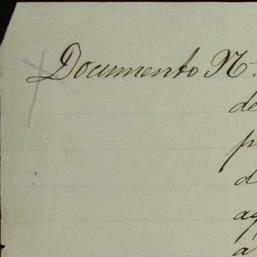 Documento N.
de
p
d
ag
a